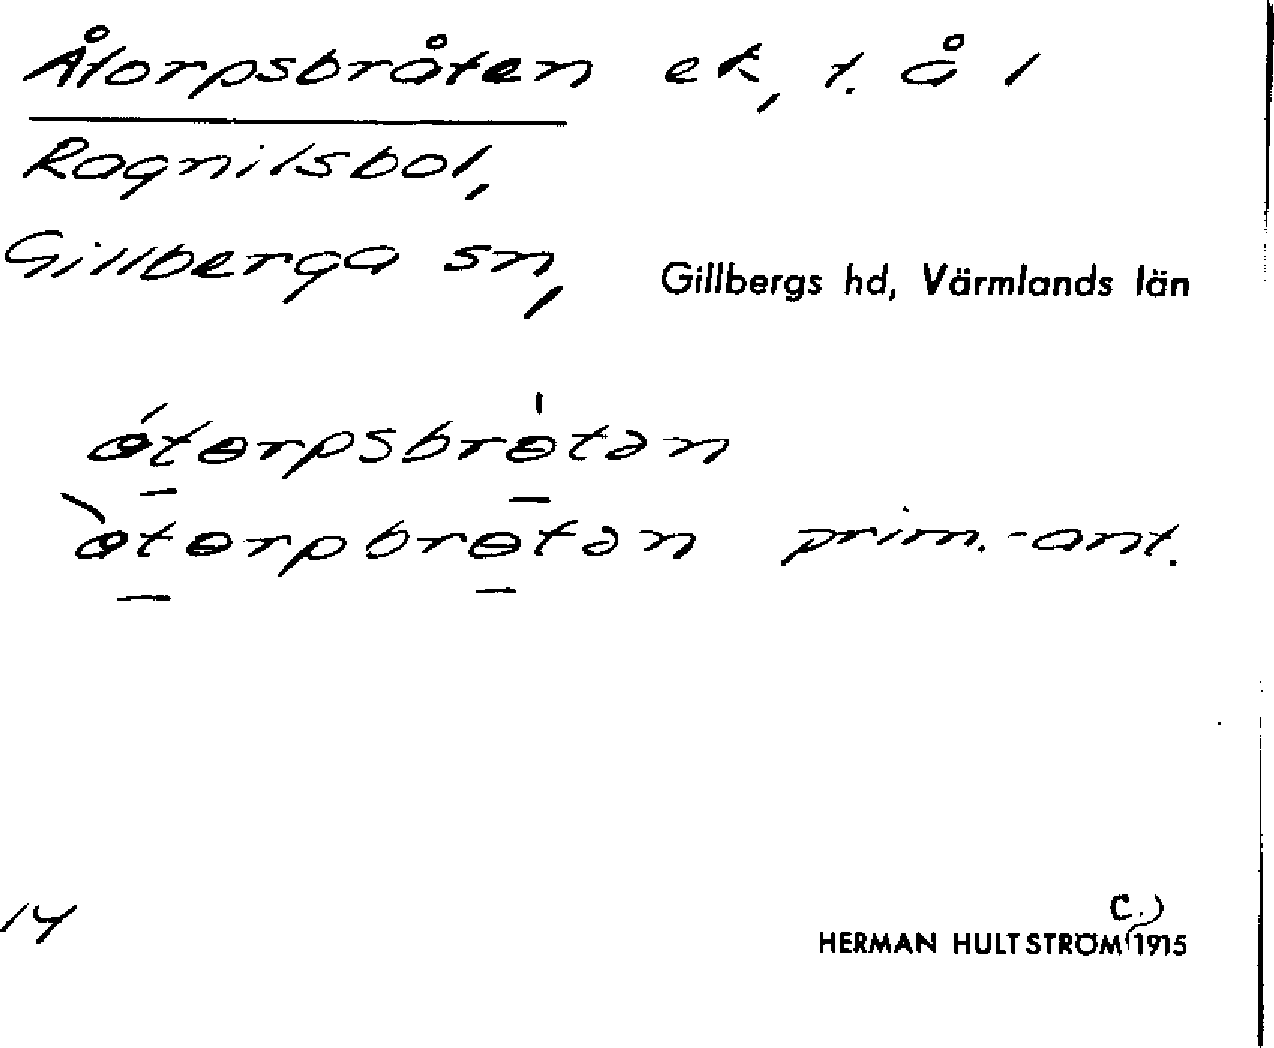 Åtorpsbråten ek, t. å 1
Ragnilsbol,
Gillberga sn, Gillbergs hd, Värmlands län
ɵ́tɵrpsbrɵ̍tən
ɵ̀tɵrpbrɵtən prim.-ant.
14
C.)
HERMAN HULTSTRÖM 1915